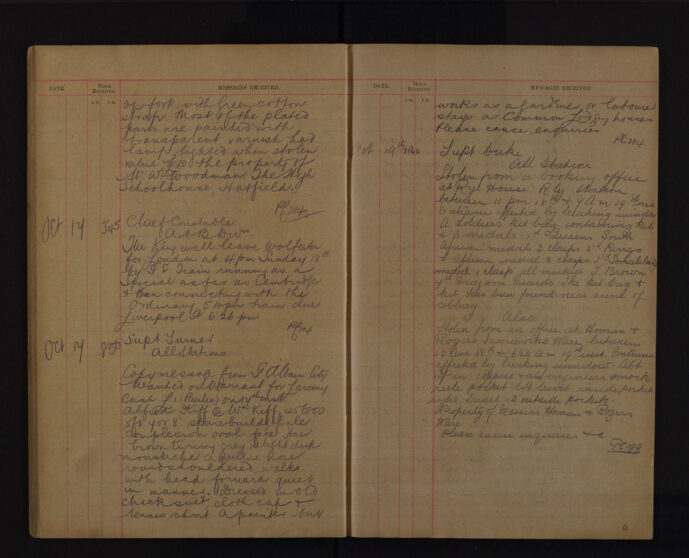 DATE.
HOUR RECEIVED.
A.M. P.M.
MESSAGES RECEIVED.
or fork with Green cotton
strap most of the plated
parts are painted with
transparent varnish had
lamp lighted when stolen
value £10 the property of
Mr Wm Woodman The High
Schoolhouse, Hatfield.
Oct 17 345 Chief Constable
A & B Divns
The King will leave Wolferton
for London at 4 pm Sunday 18th
by G E Train running as a
Special as far as Cambridge
& then connecting with the
Ordinary 5 pm train due
Liverpool St 6 26 pm
Oct 17 800 Supt Turner
All Stations
Copy message from St Albans City
Wanted on Warrant for Larceny
Cash
Alfred Kiff @ Wm Kiff
5 ft 7 or 8 spare build pale
complexion oval face Hair
brown turning grey slight dark
moustache aquiline nose
round shouldered walks
with head forward quiet
in manner. Dressed in Old
check suit cloth cap &
tennis shirt A painter but
DATE.
HOUR RECEIVED.
A.M. P.M.
MESSAGES RECEIVED.
works as a gardiner, or labourer
stays a Common Lodg houses
Please cause enquiries
Oct 19th Supt Duke
All Stations
Stolen from a booking office
at Rye House Rly Station
between 11 pm 18th & 7 A m 19th
Entrance effected by breaking window
A soldiers kit bag containing kit
& 3 medals 1st Queens South
African medal 3 clasps 2nd Kings
S African medal 2 clasps 3rd Somaliland
medal 1 clasp all marked T Brown
7th Dragoon Guards The kit bag &
kit has been found near scene of
robbery
Also
Stolen from an office at Homan &
Rogers Ware between
18th & 6 A m 19th inst. Entrance
effected by breaking window Abt
copper & an engineers smock
inside pocket
right breast 2 outside pockets
Property of Messrs Homan & Rogers
Ware
Please cause enquiries & c